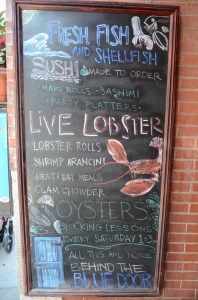 FRESH FISH
AND SHELLFISH
SUSHI MADE TO ORDER
MAKI ROLLS · SASHIMI
PARTY PLATTERS
LIVE LOBSTER
LOBSTER ROLLS
SHRIMP ARANCINI
HEAT & EAT MEALS
CLAM CHOWDER
OYSTERS
SHUCKING LESSONS
EVERY SATURDAY 1-3
ALL THIS AND MORE
BEHIND THE
BLUE DOOR